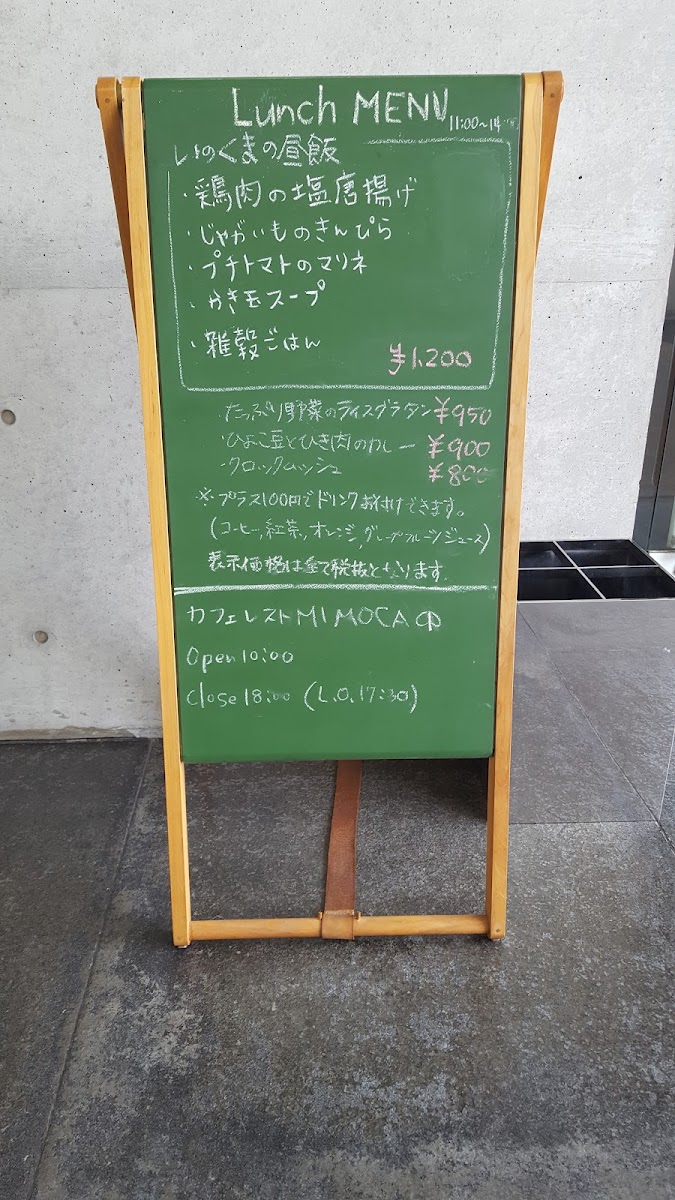 Lunch MENU 11:00~14
いのくまの昼飯
・鶏肉の塩唐揚げ
・じゃがいものきんぴら
・プチトマトのマリネ
・かき玉スープ
・雑穀ごはん
¥1,200
・たっぷり野菜のライスグラタン ¥950
・ひよこ豆とひき肉のカレー ¥900
・クロックムッシュ ¥800
※プラス100円でドリンクお付けできます。
(コーヒー,紅茶,オレンジ,グレープフルーツジュース)
表示価格は全て税抜となります。
カフェレストMIMOCA
Open10:00
Close18:00 (L.O.17:30)